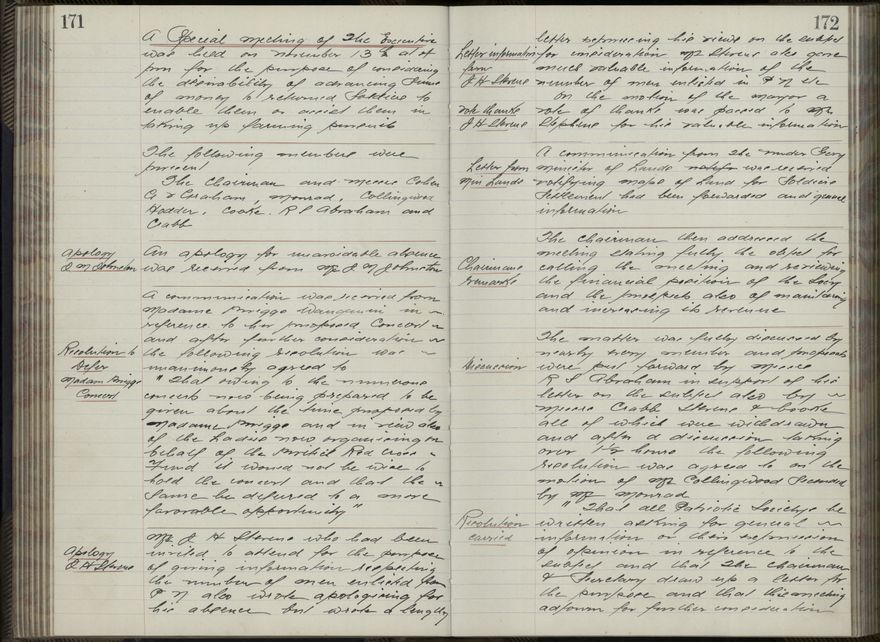 171
A Special meeting of the Executive
was held on November 13th at 7.
p.m for the purpose of considering
the desirability of advancing sums
of money to returned Soldiers to
enable them or assist them in
taking up farming pursuits
The following members were
present
The Chairman and Messrs Cohen
Graham, Monrad, Collingwood
Hodder, Cooke, R S Abraham and
Crabb
Apology
J M Johnston
An apology for unavoidable absence
was received from Mr J M Johnston
A communication was received from
Madame Briggs Wanganui in
reference to her proposed Concert
and after further consideration
Resolution to
Defer
Madam Briggs
Concert
the following resolution was
unanimously agreed to
"That owing to the numerous
concerts now being prepared to be
given about the time proposed by
Madame Briggs and in view also
of the Ladies now organising on
behalf of the British Red Cross
Fund it would not be wise to
hold the concert and that the
same be deferred to a more
favorable opportunity"
Apology
J H Stevens
Mr J H Stevens who had been
invited to attend for the purpose
of giving information respecting
the number of men enlisted from
P N also wrote apologising for
his absence but wrote a lengthy
172
letter expressing his views on the subject
Letter information
from
J H Stevens
for consideration Mr Stevens also gave
much valuable information of the
number of men enlisted in P N etc
Vote thanks
J H Stevens
On the motion of the mayor a
vote of thanks was passed to Mr
Stephens for his valuable information
Letter from
Min Lands
A communication from the under Secy
minister of Lands was received
notifying maps of Land for Soldiers
Settlement had been forwarded and general
information
Chairmans
Remarks
The Chairman then addressed the
meeting stating fully the object for
calling the meeting and reviewing
the financial position of the Socy
and the prospects also of maintaining
and increasing its revenue
Discussion
The matter was fully discussed by
nearly every member and proposals
were put forward by Messrs
R S Abraham in support of his
letter on the subject also by
Messrs Crabb Stevens & Cooke
all of which were withdrawn
and after a discussion lasting
over 1½ hours the following
resolution was agreed to on the
motion of Mr Collingwood Seconded
by Mr Monrad
Resolution
carried
"That all Patriotic Societys be
written asking for general
information on their expression
of opinion in reference to the
subject and that the Chairman
& Secretary draw up a letter for
the purpose and that this meeting
adjourn for further consideration